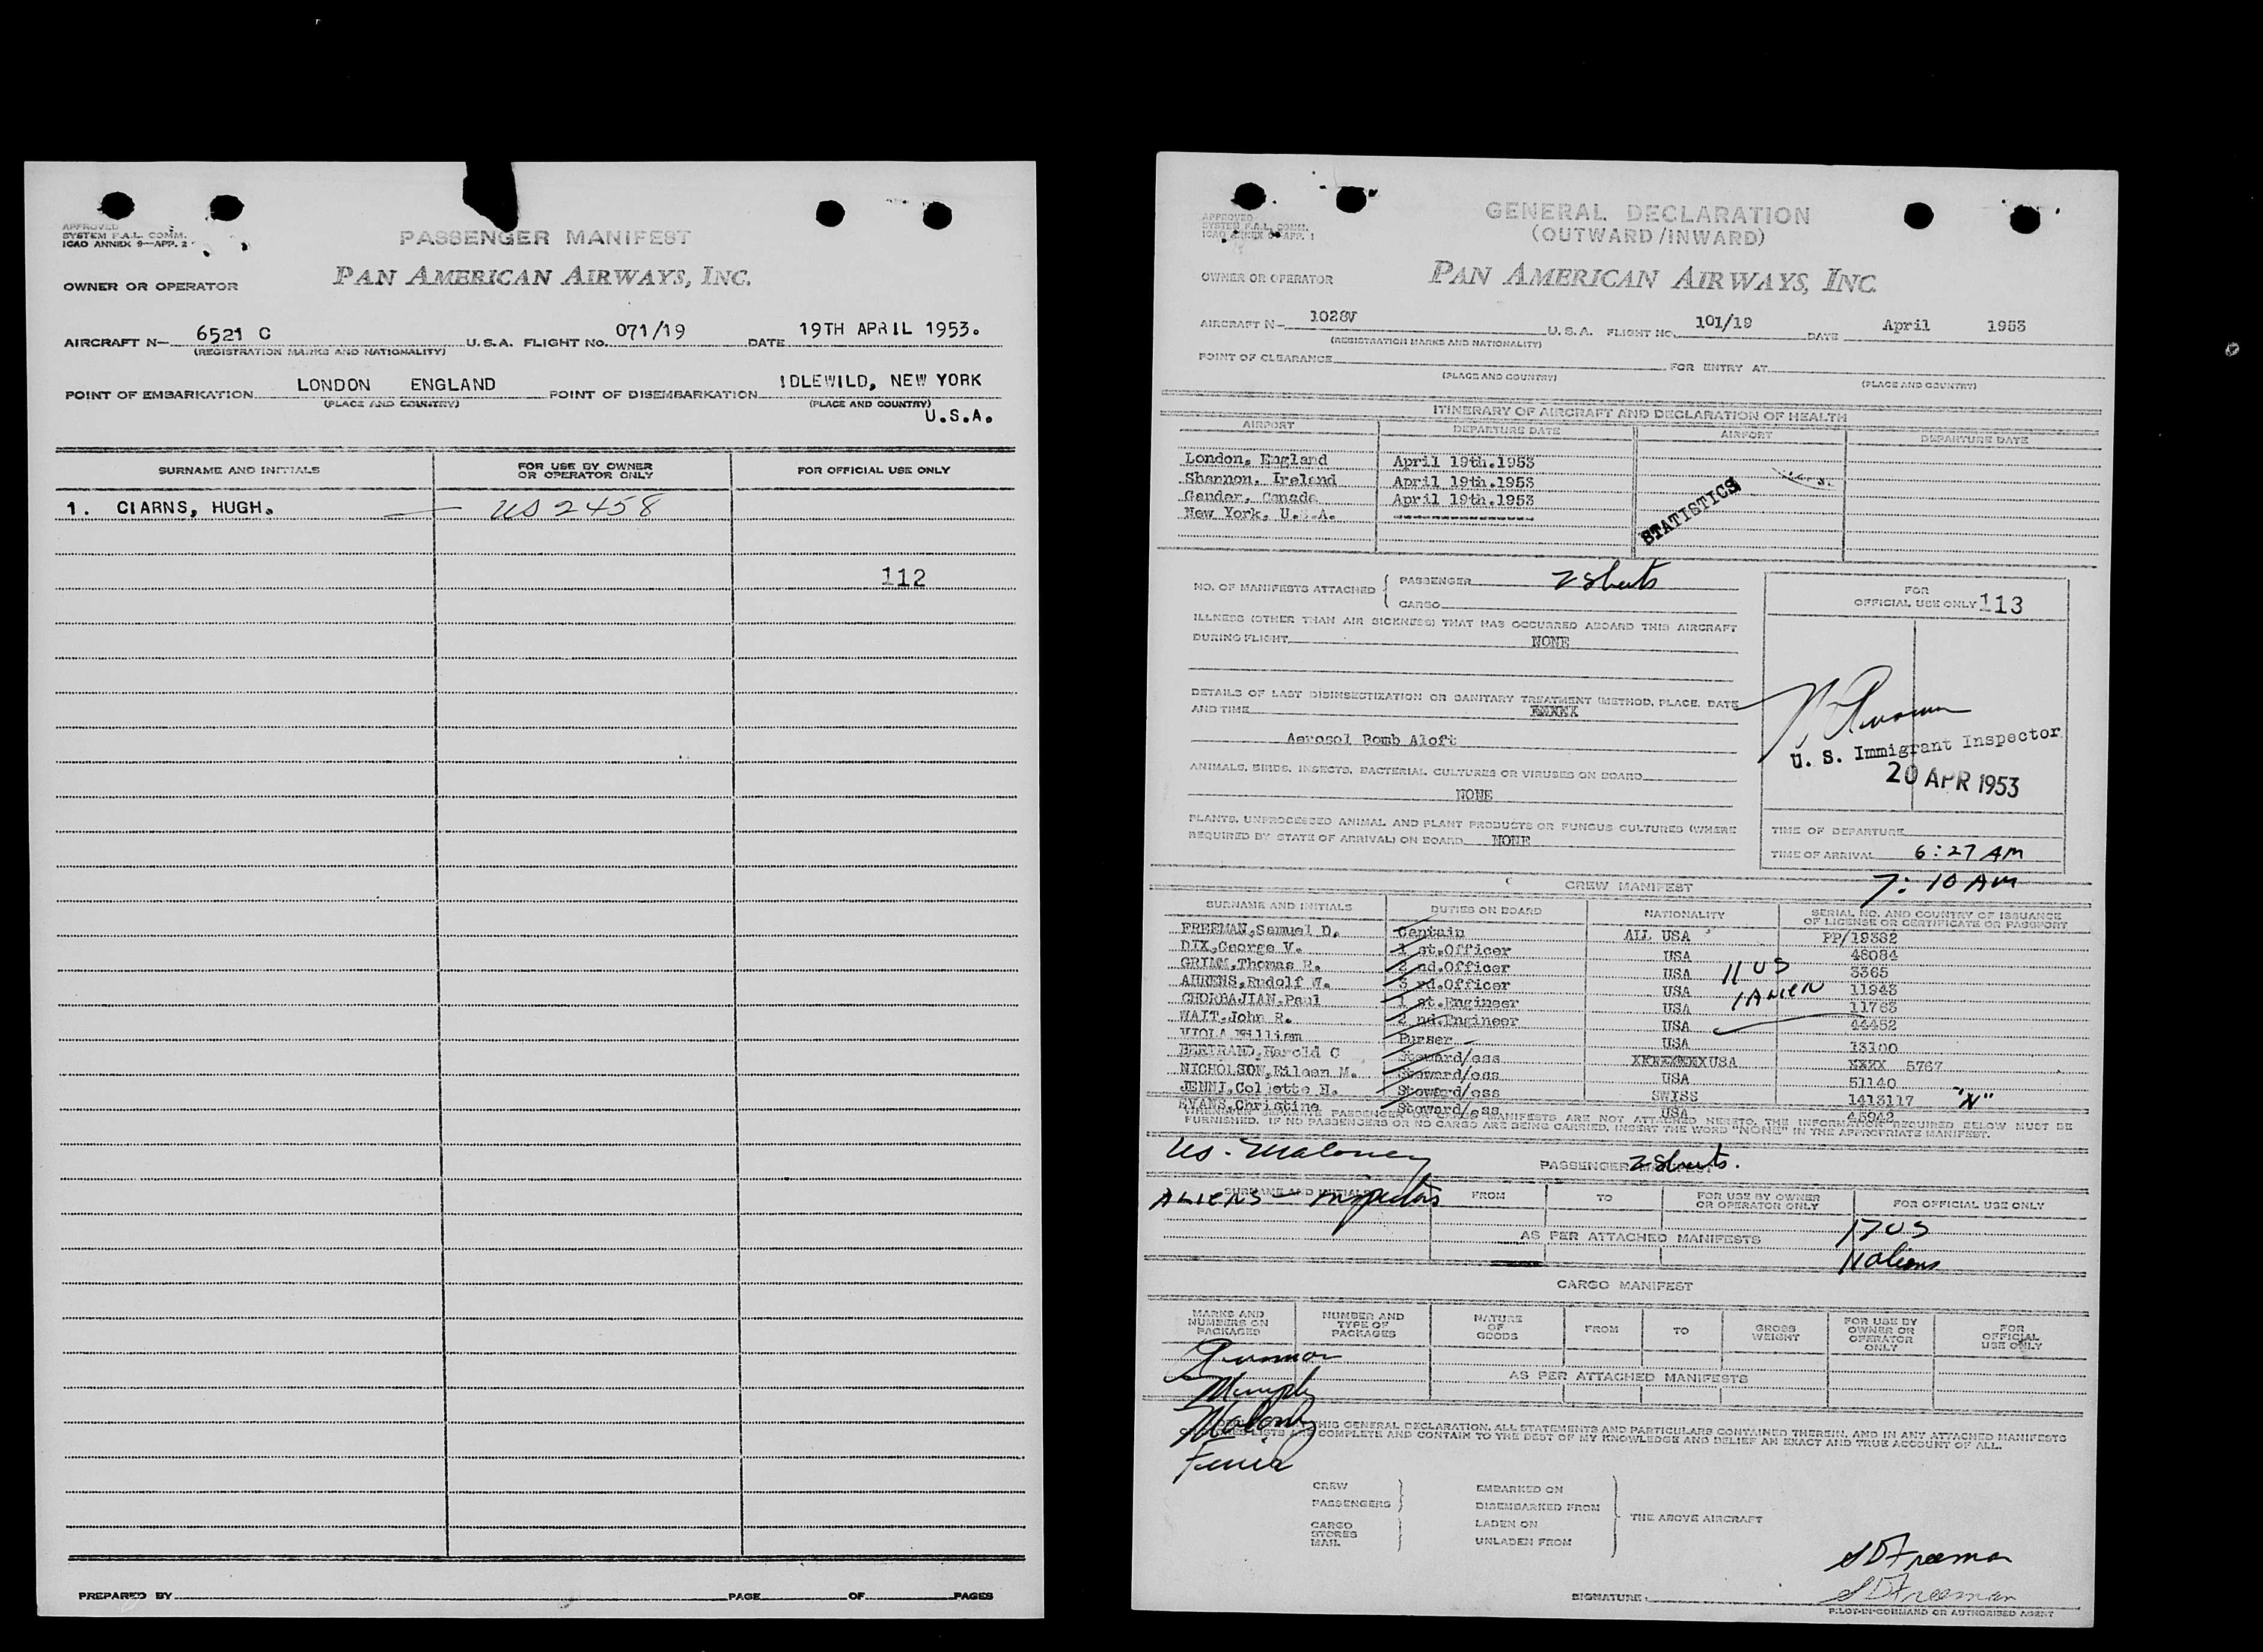 APPROVED
SYSTEM F.A.L. COMM.
ICAO ANNEX 9—APP. 2
PASSENGER MANIFEST
OWNER OR OPERATOR PAN AMERICAN AIRWAYS, INC.
AIRCRAFT N— 6521 C U.S.A. FLIGHT NO. 071/19 DATE 19TH APRIL 1953.
(REGISTRATION MARKS AND NATIONALITY)
POINT OF EMBARKATION LONDON ENGLAND POINT OF DISEMBARKATION IDLEWILD, NEW YORK
(PLACE AND COUNTRY) (PLACE AND COUNTRY)
U.S.A.
SURNAME AND INITIALS FOR USE BY OWNER OR OPERATOR ONLY FOR OFFICIAL USE ONLY
1. CIARNS, HUGH. — US 2458
112
PREPARED BY PAGE OF PAGES
APPROVED
SYSTEM F.A.L. COMM.
ICAO ANNEX 9—APP. 1
GENERAL DECLARATION
(OUTWARD/INWARD)
OWNER OR OPERATOR PAN AMERICAN AIRWAYS, INC.
AIRCRAFT N— 1028V U.S.A. FLIGHT NO. 101/19 DATE April 1953
(REGISTRATION MARKS AND NATIONALITY)
POINT OF CLEARANCE FOR ENTRY AT
(PLACE AND COUNTRY) (PLACE AND COUNTRY)
ITINERARY OF AIRCRAFT AND DECLARATION OF HEALTH
AIRPORT DEPARTURE DATE AIRPORT DEPARTURE DATE
London, England April 19th.1953
Shannon, Ireland April 19th.1953
Gander, Canada April 19th.1953
New York, U.S.A. --------------
STATISTICS
NO. OF MANIFESTS ATTACHED { PASSENGER 2 sheets
CARGO
FOR OFFICIAL USE ONLY 113
ILLNESS (OTHER THAN AIR SICKNESS) THAT HAS OCCURRED ABOARD THIS AIRCRAFT
DURING FLIGHT NONE
DETAILS OF LAST DISINSECTIZATION OR SANITARY TREATMENT (METHOD, PLACE, DATE
AND TIME
Aerosol Bomb Aloft
U. S. Immigrant Inspector
20 APR 1953
ANIMALS, BIRDS, INSECTS, BACTERIAL CULTURES OR VIRUSES ON BOARD
NONE
PLANTS, UNPROCESSED ANIMAL AND PLANT PRODUCTS OR FUNGUS CULTURES (WHERE
REQUIRED BY STATE OF ARRIVAL) ON BOARD NONE
TIME OF DEPARTURE
TIME OF ARRIVAL 6:27 AM
7:10 AM
CREW MANIFEST
SURNAME AND INITIALS DUTIES ON BOARD NATIONALITY SERIAL NO. AND COUNTRY OF ISSUANCE OF LICENSE OR CERTIFICATE OR PASSPORT
FREEMAN,Samuel D. Captain ALL USA PP/19382
DIX,George V. 1 st.Officer USA 48084
GRIMM,Thomas R. 2 nd.Officer USA 3365
AHRENS,Rudolf W. 3 rd.Officer USA 11943
CHORBAJIAN.Paul 1 st.Engineer USA 11763
WAIT,John R. 2 nd.Engineer USA 44452
VIOLA William Purser USA 13100
BERTRAND,Harold C Steward/ess USA 5767
NICHOLSON,Eileen M. Steward/ess USA 51140
JENNI,Collette H. Steward/ess SWISS 1413117 "N"
EVANS,Christine Steward/ess USA 45942
11 US
1 ALIEN
PASSENGER MANIFESTS ARE NOT ATTACHED HERETO, THE INFORMATION REQUIRED BELOW MUST BE
FURNISHED. IF NO PASSENGERS OR NO CARGO ARE BEING CARRIED, INSERT THE WORD "NONE" IN THE APPROPRIATE MANIFEST.
US - Maloney
PASSENGER MANIFEST 2 Sheets.
ALIENS — Inspectors
SURNAME AND INITIALS FROM TO FOR USE BY OWNER OR OPERATOR ONLY FOR OFFICIAL USE ONLY
17 US
AS PER ATTACHED MANIFESTS
aliens
CARGO MANIFEST
MARKS AND NUMBERS ON PACKAGES NUMBER AND TYPE OF PACKAGES NATURE OF GOODS FROM TO GROSS WEIGHT FOR USE BY OWNER OR OPERATOR ONLY FOR OFFICIAL USE ONLY
AS PER ATTACHED MANIFESTS
Murphy
Maloney
THIS GENERAL DECLARATION, ALL STATEMENTS AND PARTICULARS CONTAINED THEREIN, AND IN ANY ATTACHED MANIFESTS
LISTS ARE COMPLETE AND CONTAIN TO THE BEST OF MY KNOWLEDGE AND BELIEF AN EXACT AND TRUE ACCOUNT OF ALL.
CREW EMBARKED ON
PASSENGERS DISEMBARKED FROM
CARGO LADEN ON THE ABOVE AIRCRAFT
STORES
MAIL UNLADEN FROM
SD Freeman
SIGNATURE SD Freeman
PILOT-IN-COMMAND OR AUTHORISED AGENT